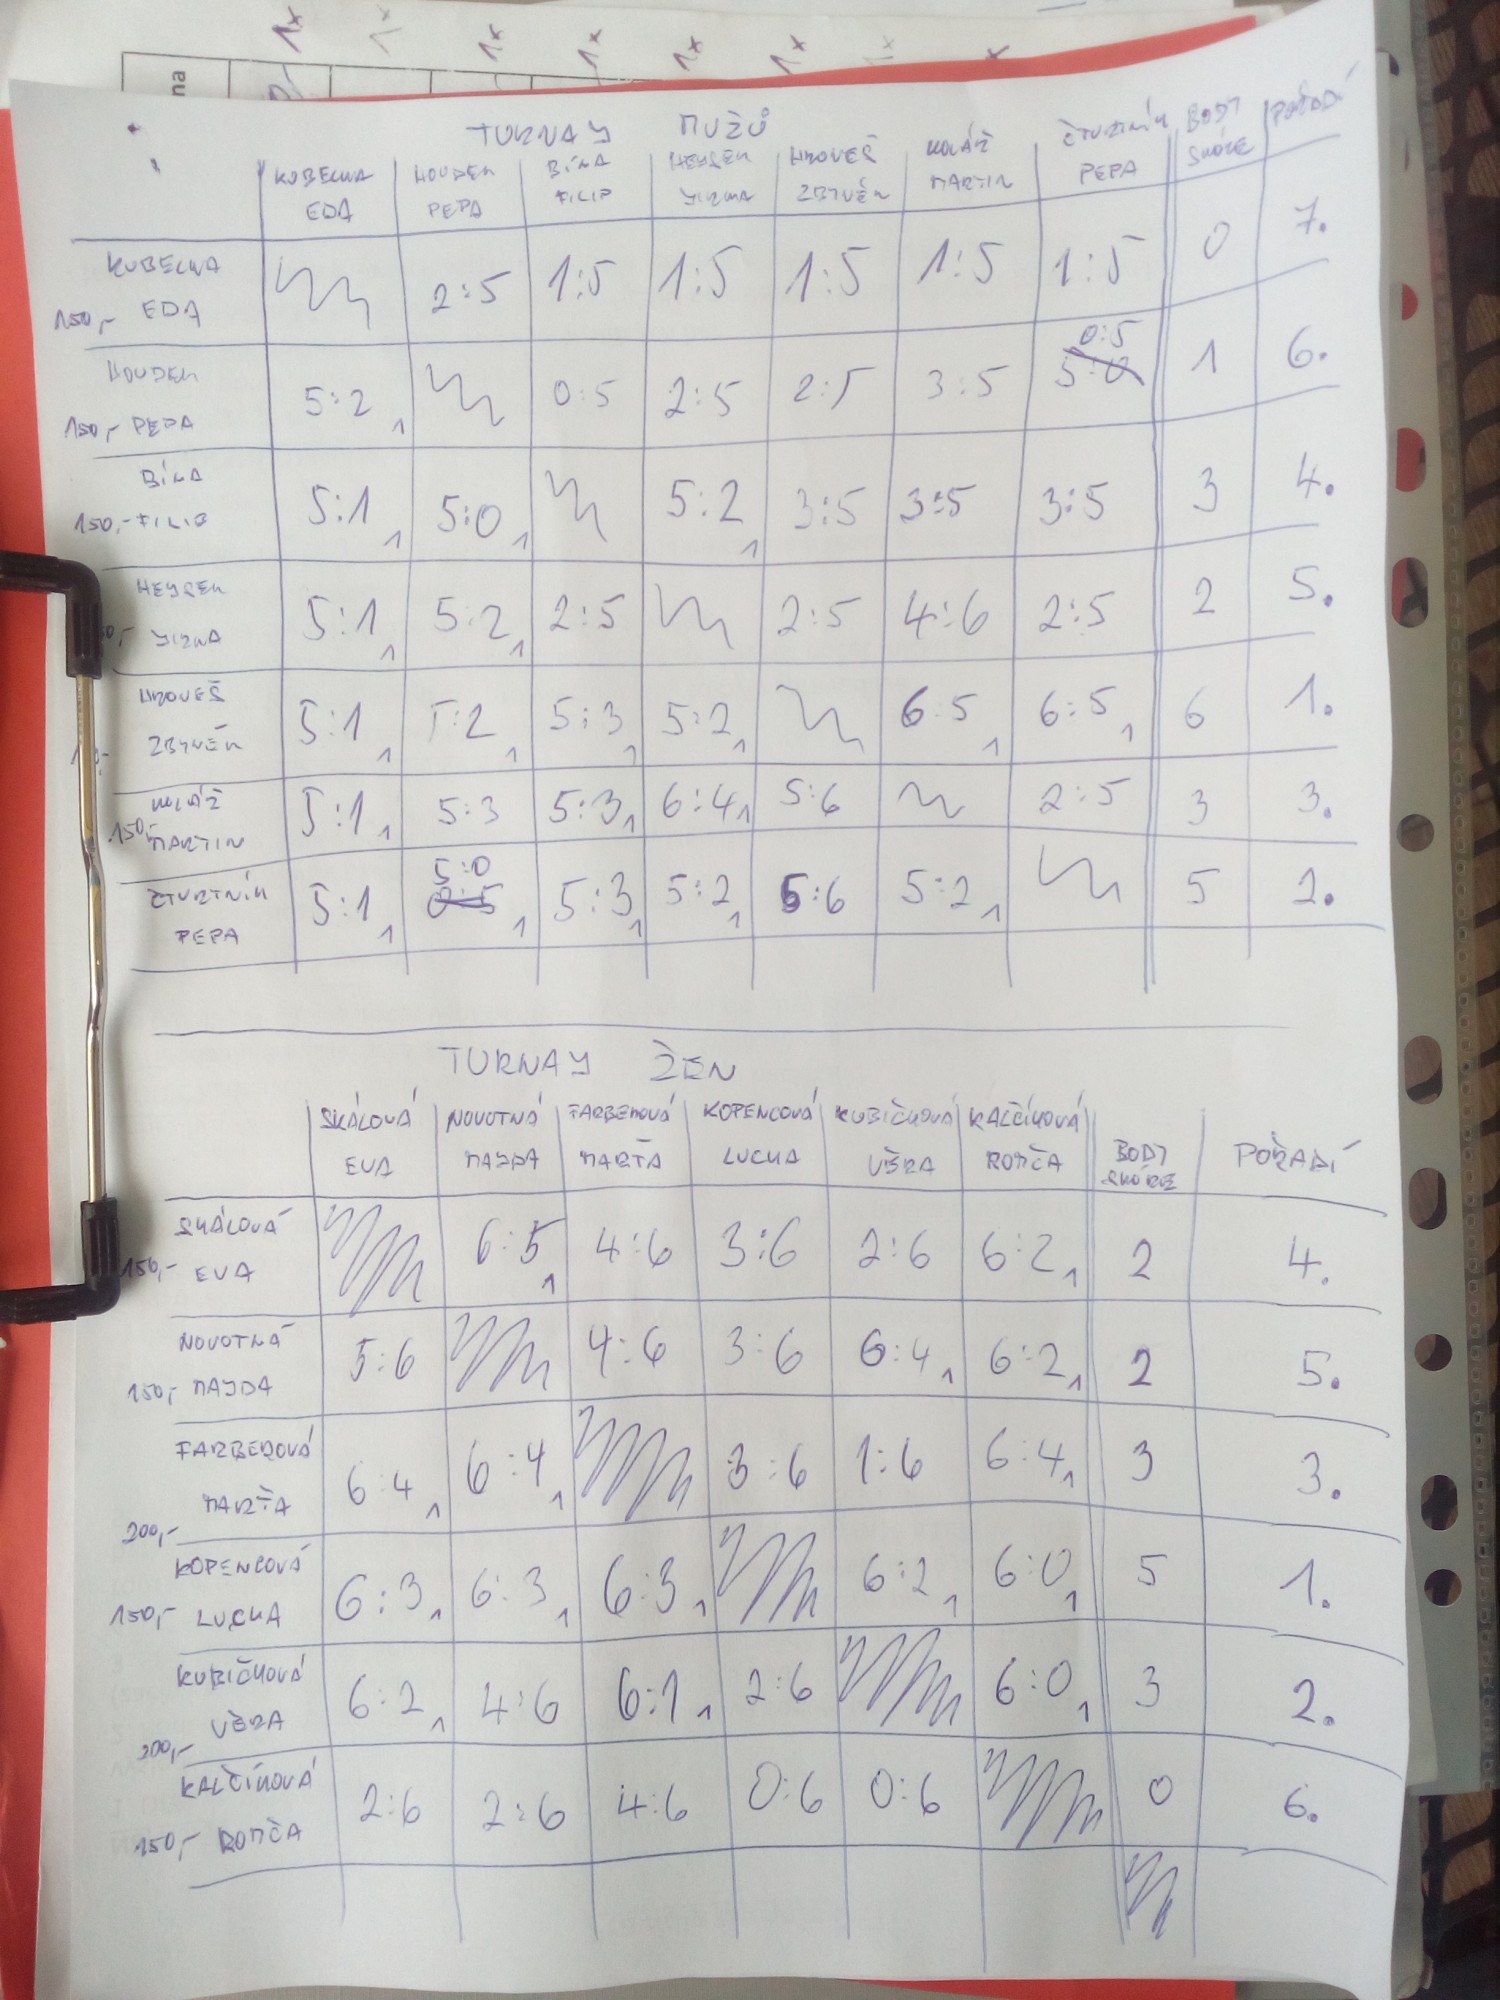 na
1x 1x 1x 1x 1x 1x 1x
TURNAJ MUŽŮ
KUBELKA EDA HOUDEK PEPA BÍLA FILIP HEJSEK JIRKA HROUEŠ ZBYNĚK KOLÁŽ MARTIN ČTVRTNÍK PEPA BODY SKÓRE POŘADÍ
KUBELKA 2:5 1:5 1:5 1:5 1:5 1:5 0 7.
150,- EDA
HOUDEK 5:2 1 0:5 2:5 2:5 3:5 0:5 5:0 1 6.
150,- PEPA
BÍLA 5:1 1 5:0 1 5:2 1 3:5 3:5 3:5 3 4.
150,- FILIP
HEJSEK 5:1 1 5:2 1 2:5 2:5 4:6 2:5 2 5.
JIRKA
HROUEŠ 5:1 1 5:2 1 5:3 1 5:2 1 6:5 1 6:5 1 6 1.
ZBYNĚK
KOLÁŽ 5:1 1 5:3 5:3 1 6:4 1 5:6 2:5 3 3.
150,- MARTIN
ČTVRTNÍK 5:1 1 5:0 0:5 1 5:3 1 5:2 1 5:6 5:2 1 5 2.
PEPA
TURNAJ ŽEN
SKÁLOVÁ EVA NOVOTNÁ MAJDA FARBEROVÁ MARŤA KOPENCOVÁ LUCKA KUBIČKOVÁ VĚRA KALČÍKOVÁ ROMČA BODY SKÓRE POŘADÍ
SKÁLOVÁ 6:5 1 4:6 3:6 2:6 6:2 1 2 4.
150,- EVA
NOVOTNÁ 5:6 4:6 3:6 6:4 1 6:2 1 2 5.
150,- MAJDA
FARBEROVÁ 6:4 1 6:4 1 3:6 1:6 6:4 1 3 3.
MARŤA
200,-
KOPENCOVÁ 6:3 1 6:3 1 6:3 1 6:2 1 6:0 1 5 1.
150,- LUCKA
KUBIČKOVÁ 6:2 1 4:6 6:1 1 2:6 6:0 1 3 2.
VĚRA
200,-
KALČÍKOVÁ 2:6 2:6 4:6 0:6 0:6 0 6.
150,- ROMČA